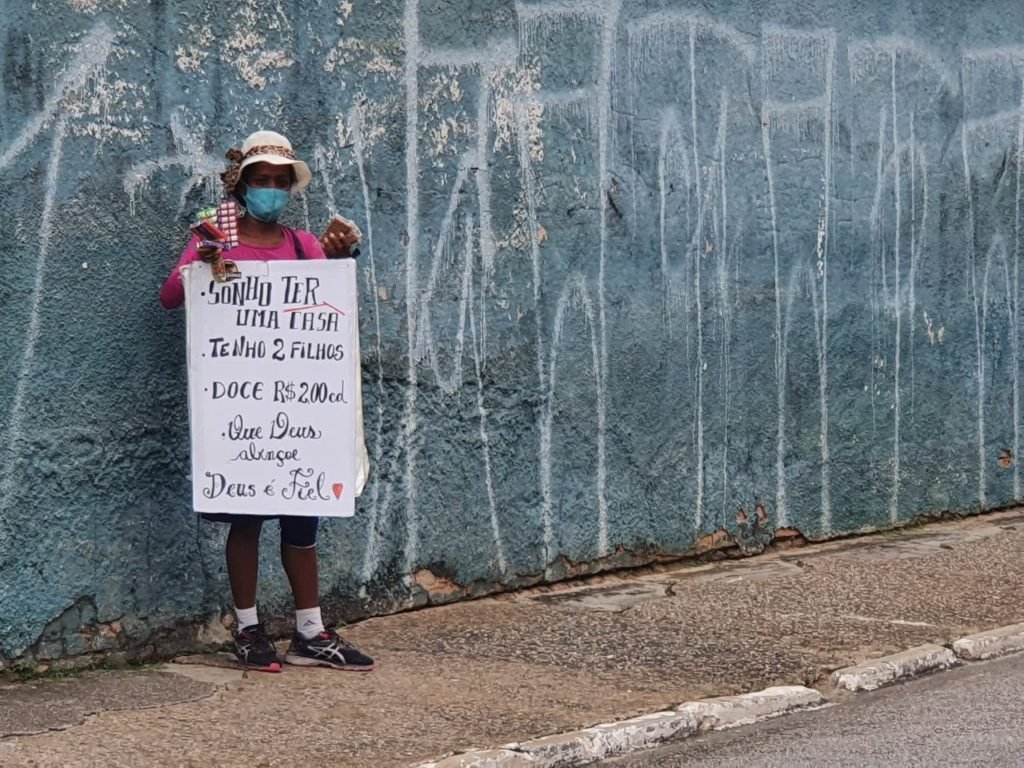 · SONHO TER
UMA CASA
· TENHO 2 FILHOS
· DOCE R$ 2,00 cd
· Que Deus
abinçoe
Deus é Fiel